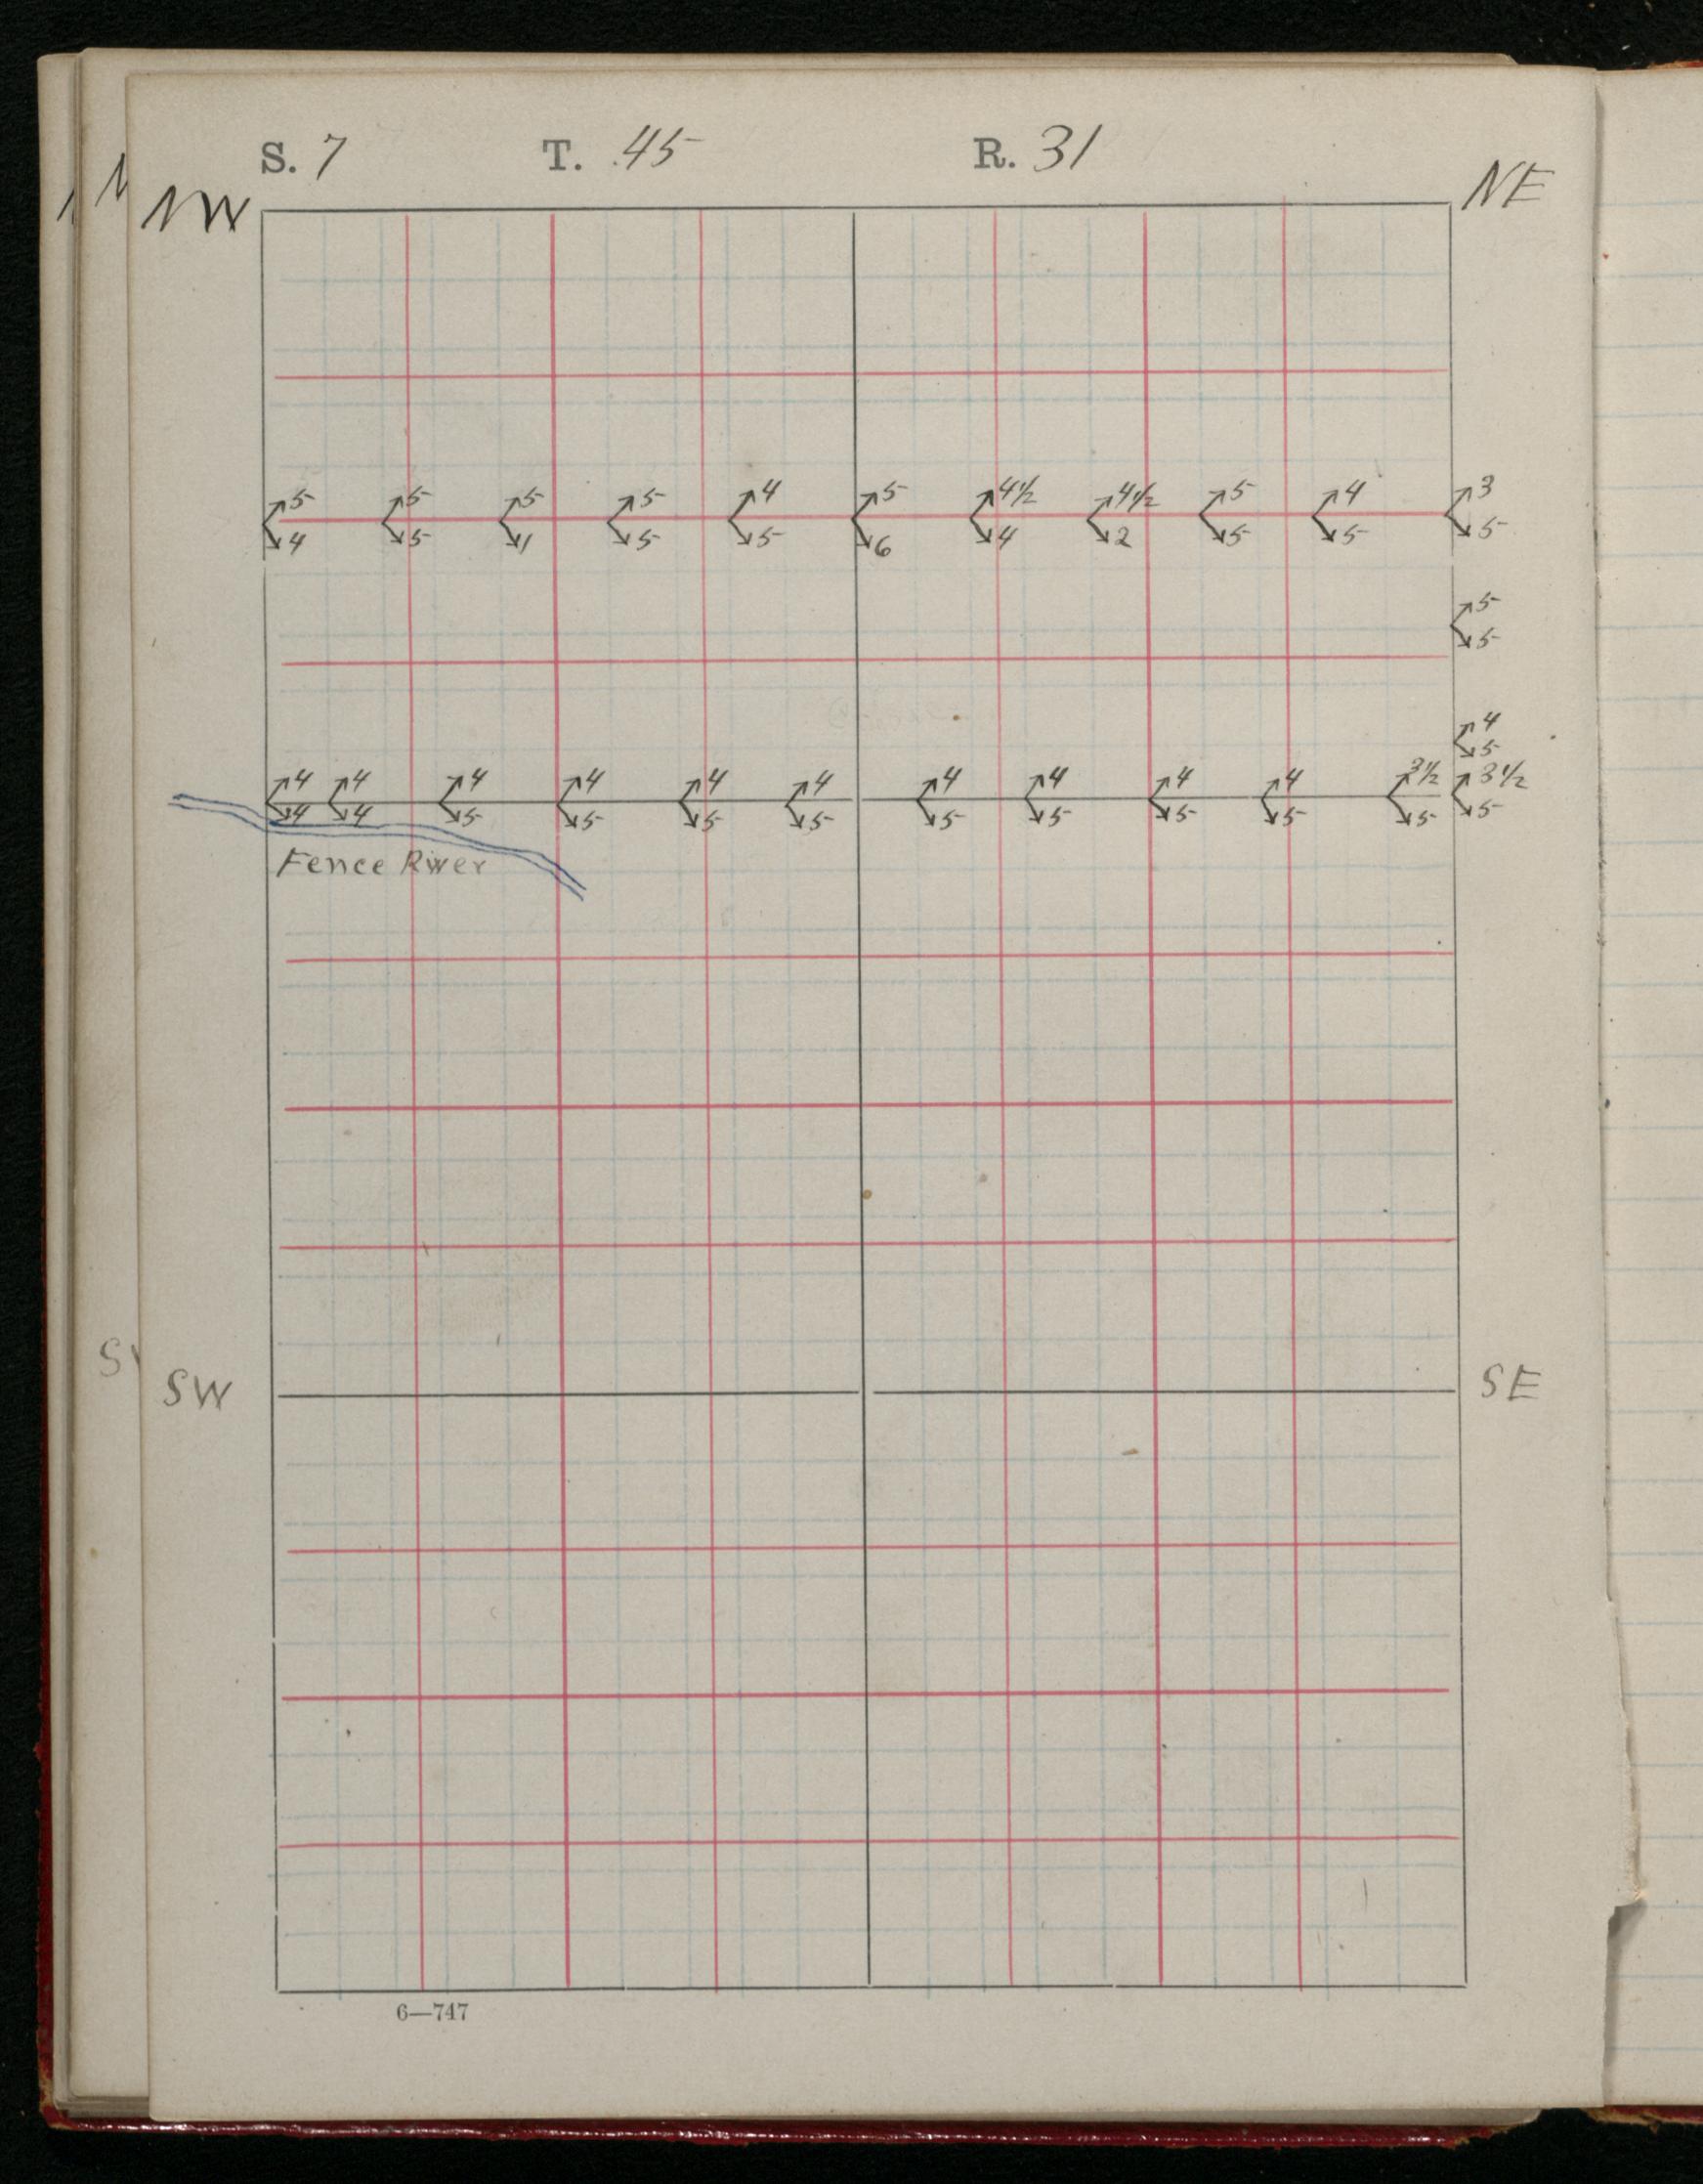 S. 7 T. 45 R. 31
NW NE
5 5 5 5 4 5 4½ 4½ 5 4 3
4 5 1 5 5 6 4 2 5 5 5
5
5
4
5
4 4 4 4 4 4 4 4 4 4 3½ 3½
4 4 5 5 5 5 5 5 5 5 5 5
Fence River
SW SE
6—747